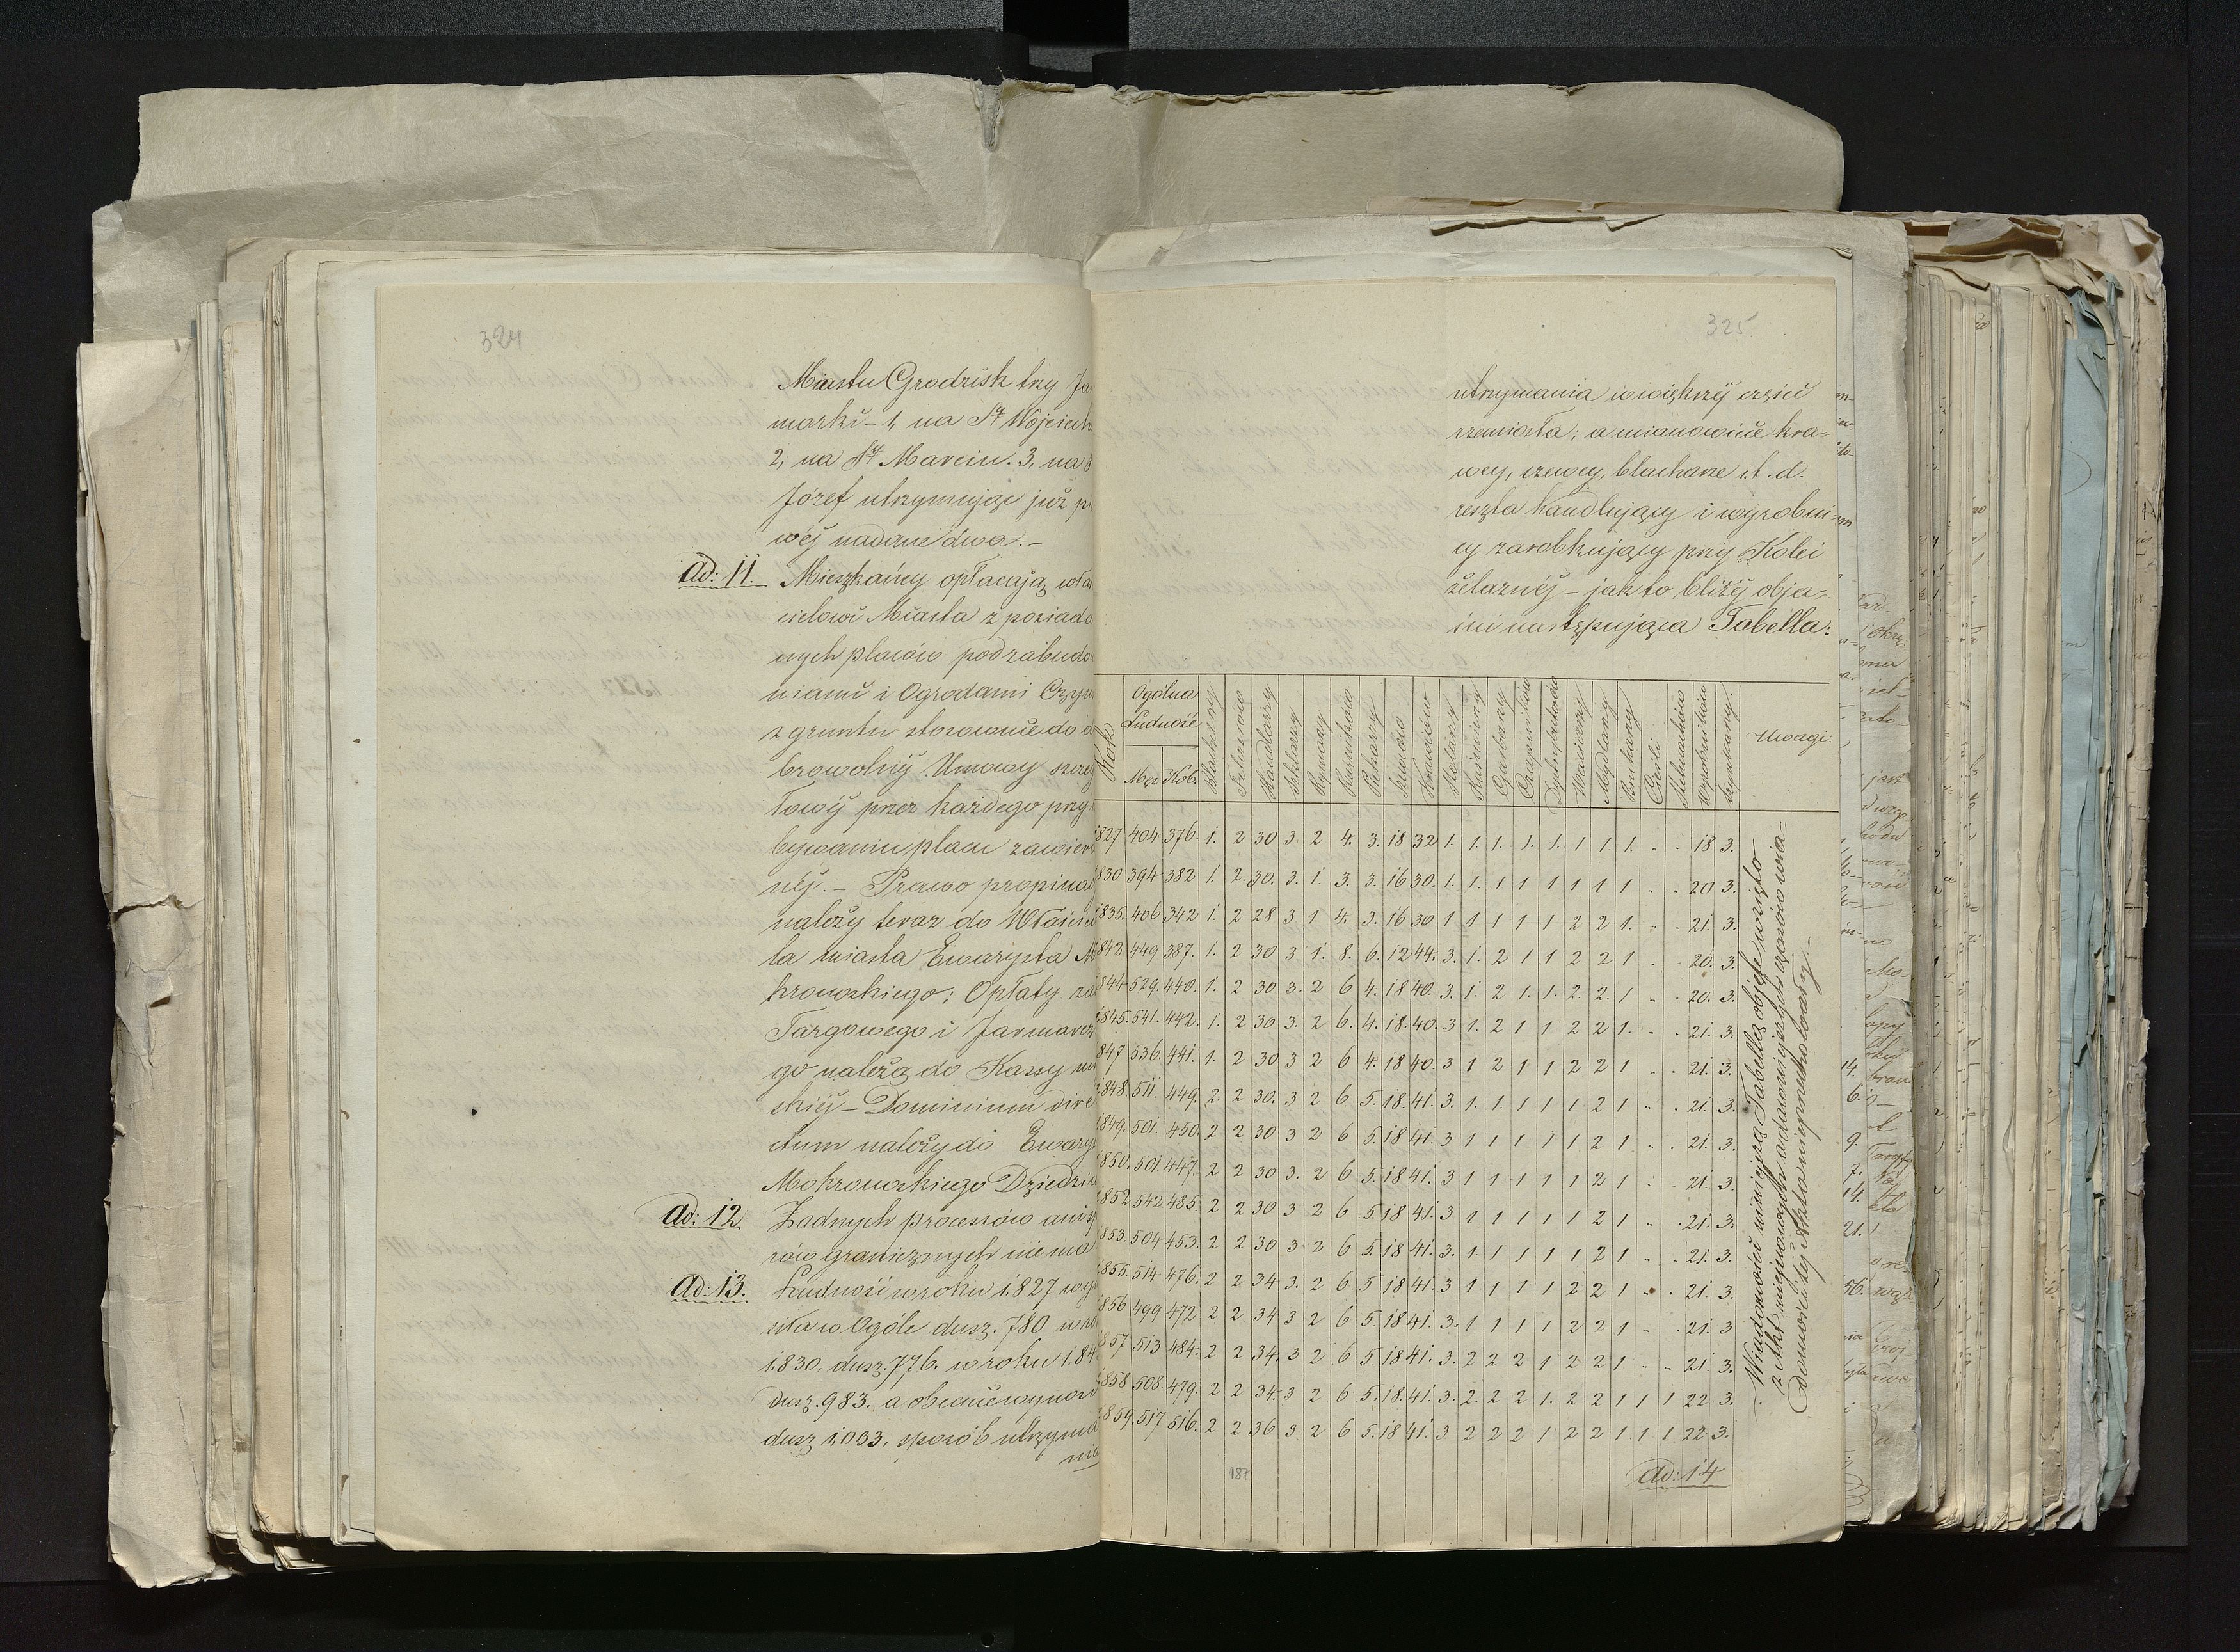 324
Miastu Grodzisk trzy Ja
marki – 1, na Sty Wojciech
2, na Sty Marcin. 3, na
Józef utrzymując już p
wéj nadane dwa. –
Ad: 11. Mieszkańcy opłacają wła
cicielowi Miasta z posiada
nych placów pod zabudo
niami i Ogrodami Czyn
z gruntu stosownie do
browolnéj Umowy szcze
łowéj przez każdego przy
bywaniu placu zawiera
néj. – Prawo propinac
należy teraz do Właścici
la miasta Ewarysta M
kronoskiego; Opłaty za
Targowego i Jarmarcz
go należą do Kassy mi
skiéj – Dominium dire
ctum należy do Ewary
Mokronoskiego Dziedzi
Ad: 12. Żadnych processów ani s
rów granicznych niema
Ad: 13. Ludność w roku 1827 wy
siła w Ogóle dusz. 780 w ro
1830. dusz. 776. w roku 184
dusz. 983. a obecnie wynosi
dusz 1,033, sposób utrzyma
nia
325.
utrzymania w większéj części
rzemiosła; a mianowicie kra-
wcy, szewcy, blacharze i.t.d.
reszta handlujący i wyrobni-
cy zarobkujący przy Kolei
żelaznéj – jak to bliżéj obja-
śni następująca Tabella:
Rok Ogólna Ludność Męz. Kob. Blacharzy Felczerów Handlarzy Szklarzy Rymarzy Rzeźników Piekarzy Szewców Krawców Kotlarzy Kuśnierzy Garbarzy Czapników Dystrybutorów Mydlarzy Cieśli Wyrobników Uwagi.
827 404 376. 1. 2 30 3 2 4. 3. 18 32 1. 1. 1. 1. 1. 1 1 1. .. .. 18 3.
830 394 382 1. 2. 30. 3. 1. 3. 3. 16 30. 1. 1. 1 1 1 1 1 1 .. .. 20 3.
835. 406 342 1. 2 28 3 1 4. 3. 16 30 1 1 1 1 1 2 2 1. .. .. 21. 3.
842 449 387. 1. 2 30 3 1. 8. 6. 12 44. 3. 1. 2 1 1 2 2 1 .. .. 20. 3.
844 529. 440. 1. 2 30 3. 2 6 4. 18 40. 3. 1. 2 1. 1. 2. 2. 1 .. .. 20. 3.
845. 541. 442. 1. 2 30 3. 2 6. 4. 18. 40. 3 1. 2 1 1 2 2 1. .. .. 21. 3.
847 536. 441. 1. 2 30 3 2 6 4. 18 40. 3 1 2 1 1 2 2 1 .. .. 21. 3.
848. 511. 449. 2. 2 30. 3 2 6 5. 18. 41. 3. 1. 1. 1 1 1 2 1 .. .. 21. 3.
849. 501. 450. 2 2 30 3 2 6 5. 18. 41. 3 1 1 1 1 1 2 1 .. .. 21. 3.
850. 501 447. 2 2 30 3. 2 6 5. 18 41. 3 1 1 1 1 1 2 1 .. .. 21. 3.
852 542 485. 2 2 30 3 2 6 5. 18 41. 3 1 1 1 1 1 2 1 .. .. 21. 3.
853. 504 453. 2 2 30 3 2 6 5. 18 41. 3. 1. 1 1 1 1 2 1 .. .. 21. 3.
855. 514 476. 2 2 34 3. 2 6 5 18 41. 3 1 1 1 1 2 2 1 .. .. 21. 3.
856 499 472 2 2 34 3 2 6 5. 18 41. 3. 1 1 1 1 2 2 1 .. .. 21. 3
857 513 484. 2 2 34. 3 2 6 5. 18 41. 3. 2 2 2 1 2 2 1 .. .. 21. 3.
858 508. 479. 2 2 34. 3 2 6 5. 18. 41. 3. 2. 2 2 1. 2 2 1 1 1 22. 3.
859. 517 516. 2 2 36 3 2 6 5. 18 41. 3 2 2 2 1 2 2 1 1 1. 22 3.
Wiadomości niniejszą Tabellą objęte wzięto
z Akt miejscowych
187
Ad: 14